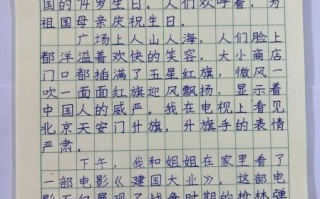 国的74岁生日。人们欢呼着，为
祖国母亲庆祝生日。
广场上人山人海，人们脸上
都洋溢着欢快的笑容。大小商店
门口都插满了五星红旗，微风一
吹一面面红旗迎风飘扬，显示着
中国人的威严。我在电视上看见
北京天安门升旗，升旗手的表情
严肃。
下午，我和姐姐在家里看了
一部电影《建国大业》。这部电
影
展现了战争时期的枪林弹